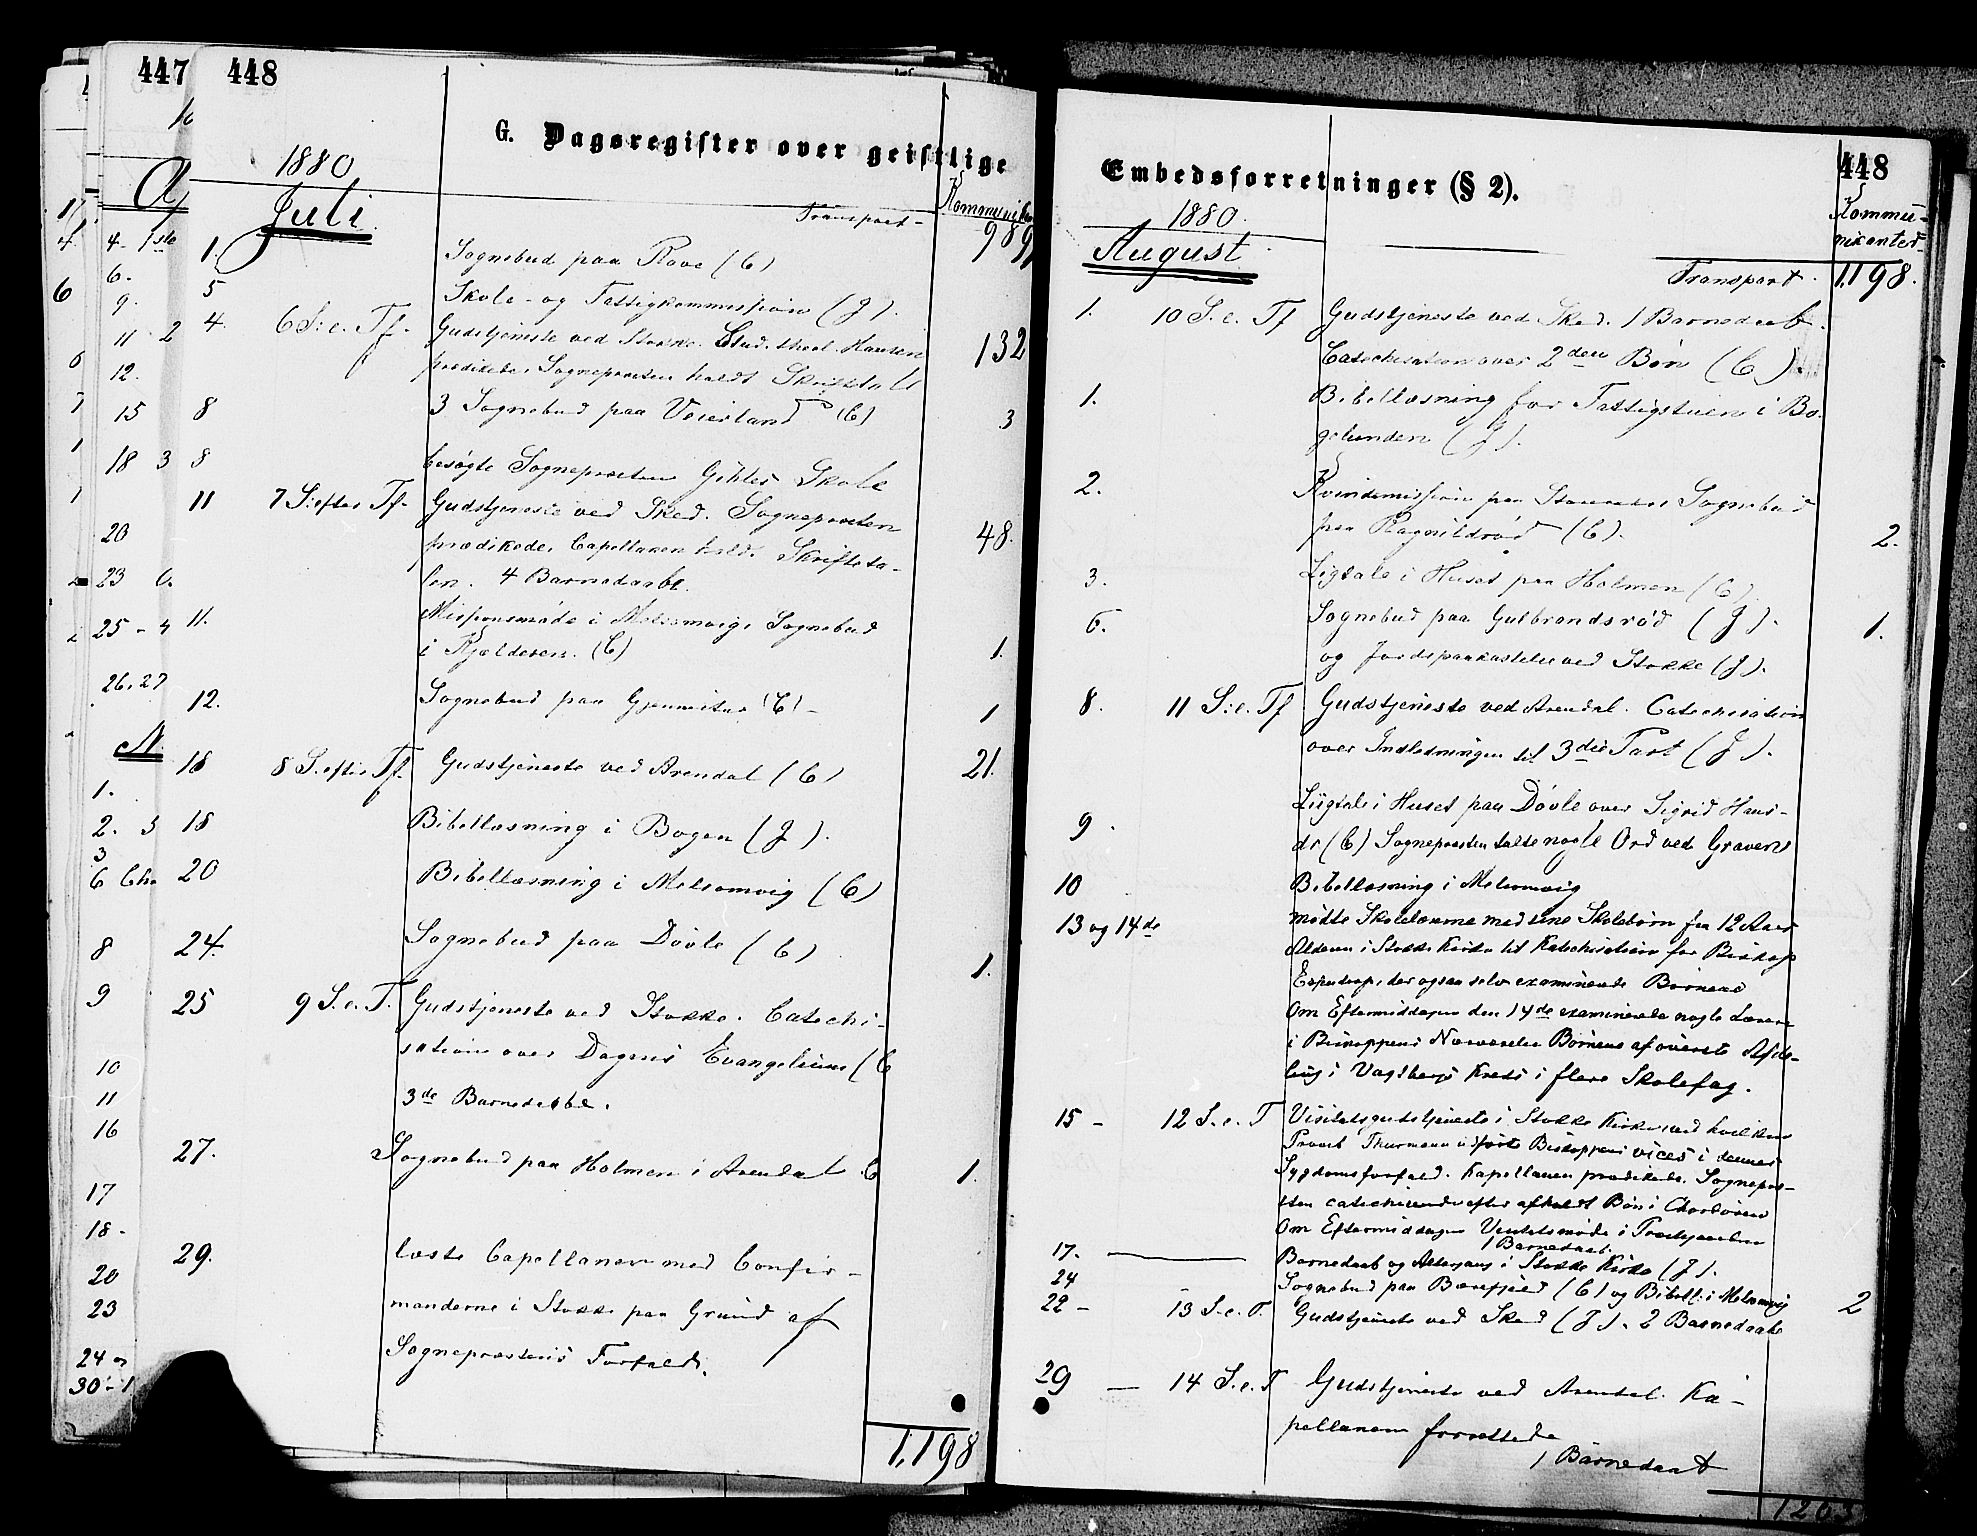 447 448 448
G. Dagsregister over geistlige
1880
Juli
Kommunik
Transport 989
1. Sognebud paa Rove (C)
5 Skole- og Fattigkommission (J).
4. 6 S. e. Tf. Gudstjeneste ved Stokke. Stud. theol. Hansen 132
prædikede, Sognepræsten holdt Skriftetale
8 3 Sognebud paa Veierland (C) 3
8 besøgte Sognepræsten Skole
11 7 S. efter Tf. Gudstjeneste ved Sked. Sognepræsten
prædikede, Capellanen holdt Skrifteta- 48.
len. 4 Barnedaabe.
11. Missionsmøde i Melsomvig, Sognebud
i Kjælderen. (C) 1.
12. Sognebud paa (C) 1
18 8 S. efter Tf. Gudstjeneste ved Arendal (C) 21.
18 Bibellæsning i Bogen (J).
20 Bibellæsning i Melsomvig (C)
24. Sognebud paa Døvle (C) 1.
25 9 S. e. T. Gudstjeneste ved Stokke. Catechi-
sation over Dagens Evangelium (C
3de Barnedaabe.
27. Sognebud paa Holmen i Arendal C 1.
29. læste Capellanen med Confir-
manderne i Stokke paa Grund af
Sognepræstens Forfald.
1,198
Embedsforretninger (§ 2).
1880.
August
Kommu-
nikanter
Transport 1,198.
1. 10 S. e. Tf Gudstjeneste ved Sked. 1 Barnedaab.
Catechisation over 2den Bøn (C).
1. Bibellæsning for Fattigstuen i Bo-
gelunden (J).
2. Kvindemission paa Sognebud
paa Ragnildrød (C). 2.
3. Ligtale i Huset paa Holmen (C)
6. Sognebud paa Gulbrandsrød (J). 1.
og Jordspaakastelse ved Stokke (J).
8. 11 S. e. Tf Gudstjeneste ved Arendal. Catechisation
over Indledningen til 3die Part (J).
9. Liigtale i Huset paa Døvle over Sigrid Hans-
dr (C) Sognepræsten talte nogle Ord ved Graven
10 Bibellæsning i Melsomvig
13 og 14de mødte Skolelærerne med sine Skolebørn fra 12 Aars
Alderen i Stokke Kirke til Katechisation for Biskop
Essendrop, der ogsaa selv examinerede Børnene
Om Eftermiddagen den 14de examinerede nogle Lærere
i Biskoppens Nærværelse Børnene af øverste Afde-
ling i Kreds i flere Skolefag.
15 - 12 S. e. T Visitatsgudstjeneste i Stokke Kirke ved hvilken
Provst Thurmann udførte Biskoppens vices i dennes
Sygdomsforfald. Kapellanen prædikede. Sognepræ-
sten catechiserede efter afholdt Bøn i Chordøren
Om Eftermiddagen Visitatsmøde i Præstegaarden
1 Barnedaab.
17. Barnedaab og Altergang i Stokke Kirke (J).
24 Sognebud paa (C) og Bibell. i Melsomvig 2
22 - 13 S. e. T. Gudstjeneste ved Sked (J). 2 Barnedaabe
29 - 14 S. e. T Gudstjeneste ved Arendal. Ka-
pellanen forrettede
1 Barnedaab